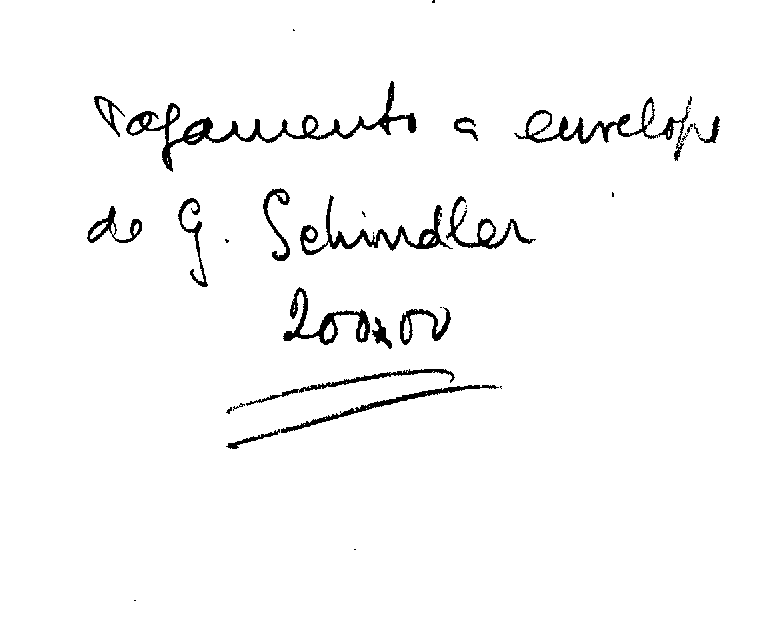 Pagamento a envelope
de G. Schindler
200,00